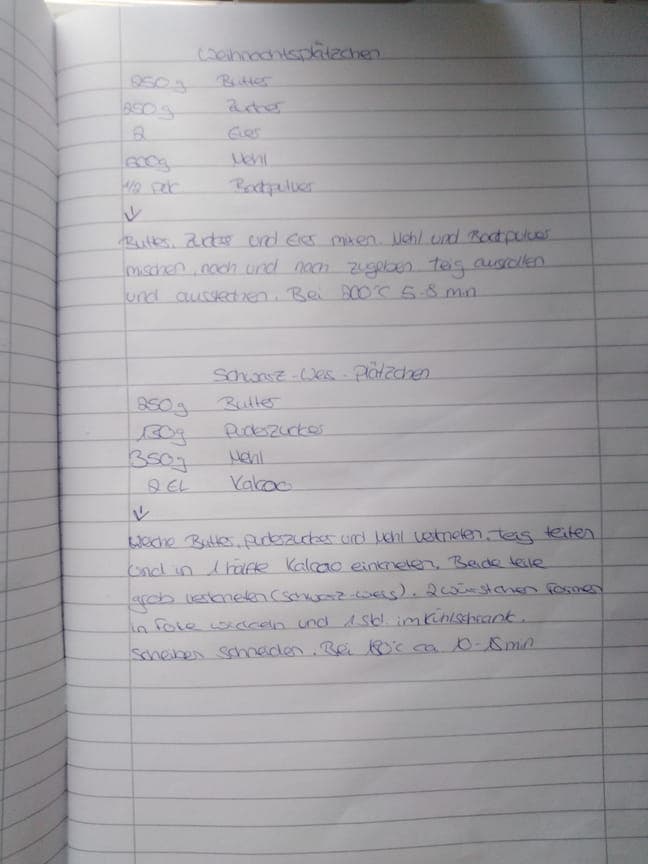 Weihnachtsplätzchen
250g Butter
250g Zucker
2 Eier
600g Mehl
1/2 Pck Backpulver
↓
Butter, Zucker und Eier mixen. Mehl und Backpulver
mischen, nach und nach zugeben teig ausrollen
und ausstechen. Bei 200°C 5-8 min
Schwarz-Weis-Plätzchen
250g Butter
130g Puderzucker
350g Mehl
2 EL Kakao
↓
Weiche Butter, puderzucker und Mehl verkneten, teig teilen
und in 1 hälfte Kakao einkneten. Beide teile
grob verkneten (schwarz-weis). 2 würstchen Formen
in Folie wickeln und 1 Std. im Kühlschrank.
Scheiben schneiden. Bei 180°c ca 10-15 min